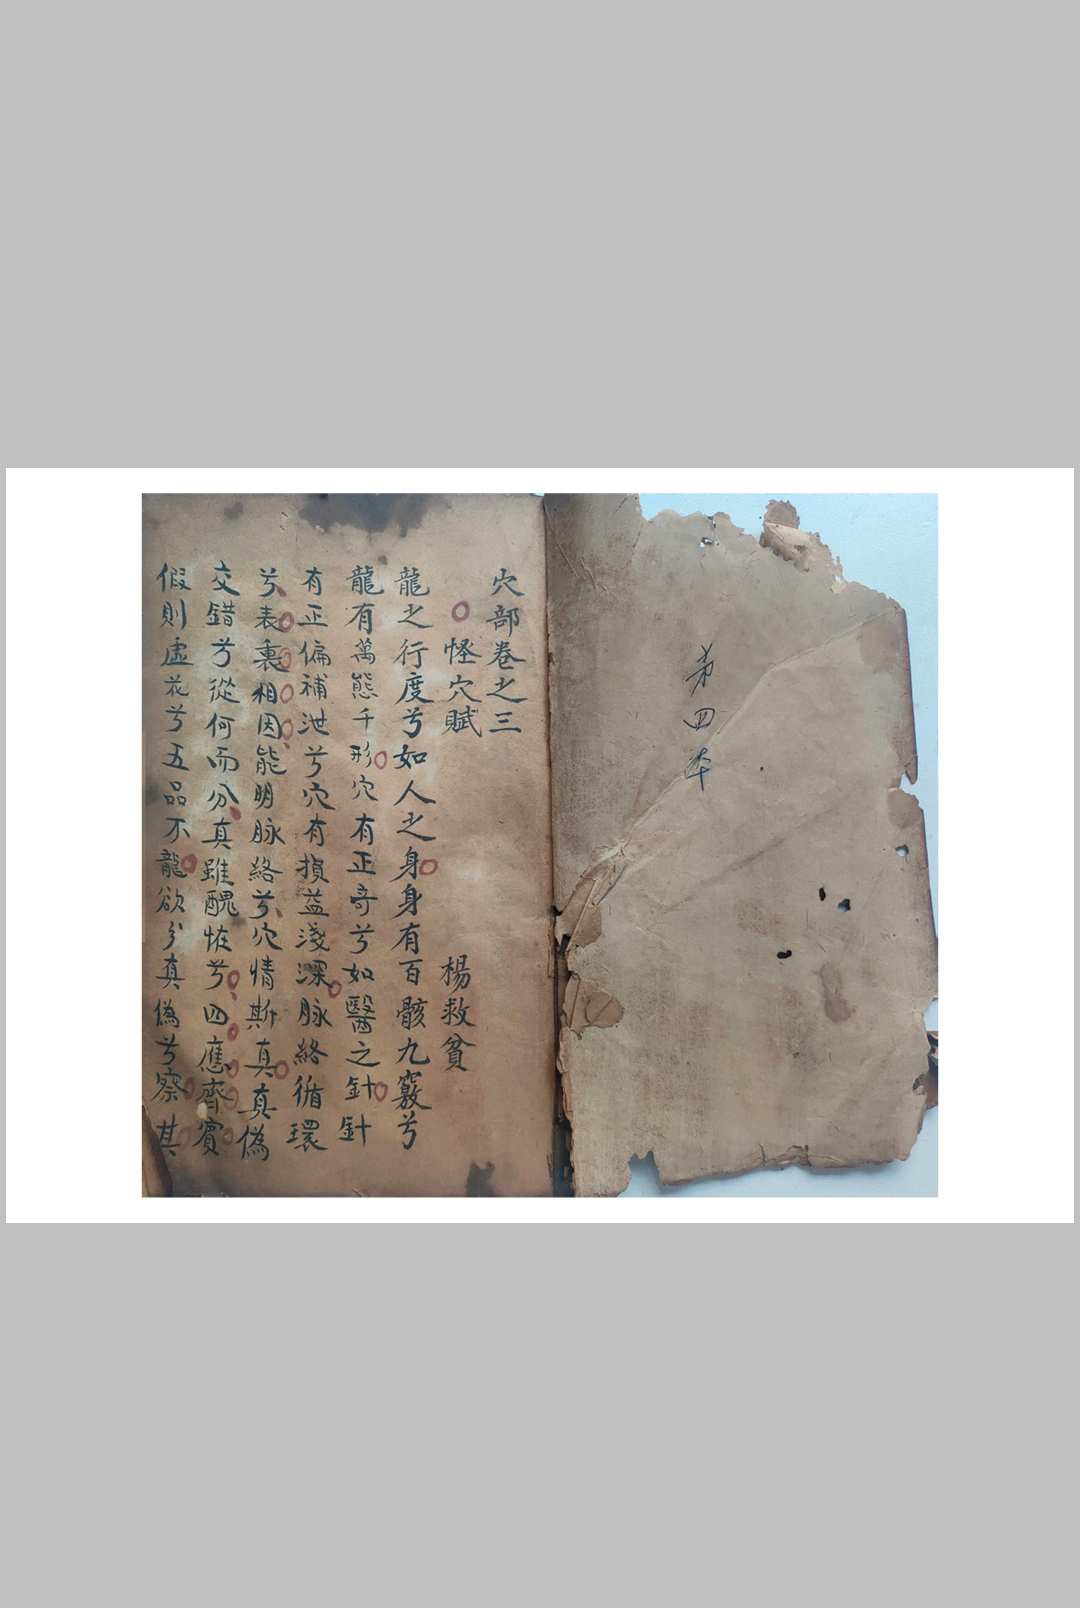 第四本
穴部卷之三
怪穴賦
楊救貧
龍之行度兮如人之身身有百骸九竅兮
龍有萬態千形穴有正奇兮如醫之針針
有正偏補泄兮穴有損益淺深脉絡循環
兮表裏相因能明脉絡兮穴情斯真真偽
交錯兮從何而分真雖醜怪兮四應齊賓
假則虛花兮五品不龍欲分真偽兮察其